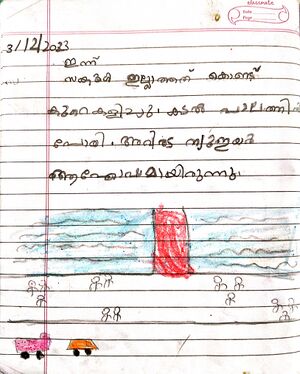 classmate
Date
Page
31/12/2023
ഇന്ന്
സ്കൂൾ ഇല്ലാത്തത് കൊണ്ട്
കുറെ കളിച്ചു. കടൽ പാലത്തിൽ
പോയി. അവിടെ ന്യൂഇയർ
ആഘോഷമായിരുന്നു.